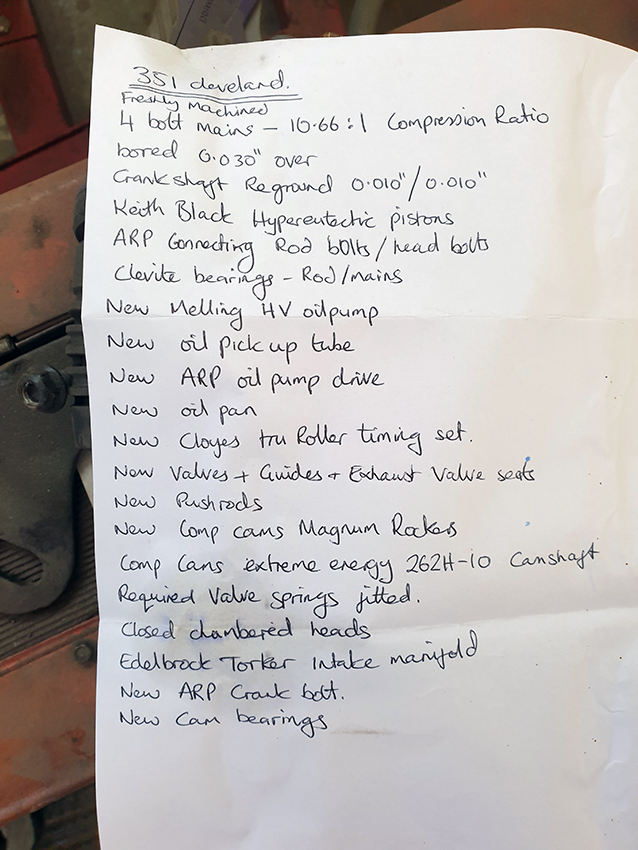 351 cleveland.
Freshly Machined
4 bolt mains - 10.66:1 Compression Ratio
bored 0.030" over
Crankshaft Reground 0.010"/0.010"
Keith Black Hypereutectic pistons
ARP Connecting Rod bolts/head bolts
Clevite bearings - Rod/mains
New Melling HV oilpump
New oil pick up tube
New ARP oil pump drive
New oil pan
New Cloyes tru Roller timing set.
New Valves + Guides + Exhaust Valve seats
New Pushrods
New Comp cams Magnum Rockers
Comp Cams extreme energy 262H-10 Camshaft
Required Valve springs fitted.
Closed chambered heads
Edelbrock Torker intake manifold
New ARP Crank bolt.
New Cam bearings